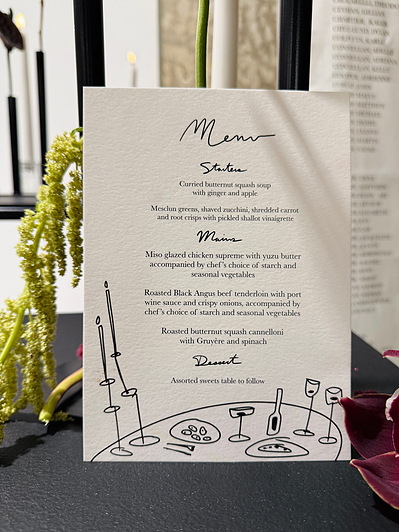 Menu
Starters
Curried butternut squash soup
with ginger and apple
Mesclun greens, shaved zucchini, shredded carrot
and root crisps with pickled shallot vinaigrette
Mains
Miso glazed chicken supreme with yuzu butter
accompanied by chef's choice of starch and
seasonal vegetables
Roasted Black Angus beef tenderloin with port
wine sauce and crispy onions, accompanied by
chef's choice of starch and seasonal vegetables
Roasted butternut squash cannelloni
with Gruyère and spinach
Dessert
Assorted sweets table to follow